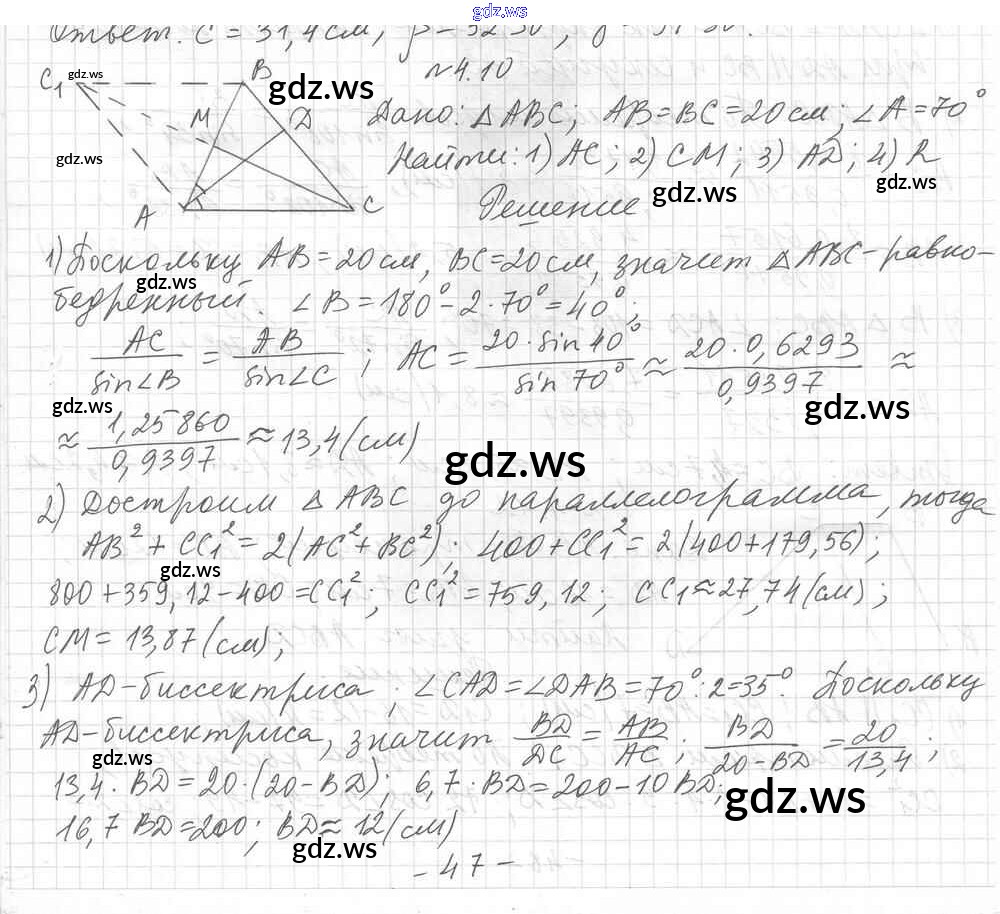 gdz.ws
Ответ. c = 31,4 см,
№4.10
C₁ gdz.ws B gdz.ws
M D
Дано: △ABC; AB=BC=20см; ∠A=70°
gdz.ws
Найти: 1) AC; 2) CM; 3) AD; 4) R
gdz.ws gdz.ws
A C
Решение
1) Поскольку AB=20см, BC=20см, значит △ABC-равно-
gdz.ws
бедренный. ∠B=180°-2·70°=40°;
AC/sin∠B = AB/sin∠C; AC = 20·sin40°/sin70° ≈ 20·0,6293/0,9397 ≈
gdz.ws gdz.ws
≈ 1,25860/0,9397 ≈ 13,4(см)
gdz.ws
2) Достроим △ABC до параллелограмма, тогда
AB²+CC₁²=2(AC²+BC²); 400+CC₁²=2(400+179,56);
gdz.ws
800+359,12-400=CC₁²; CC₁²=759,12; CC₁≈27,74(см);
CM=13,87(см);
3) AD-биссектриса; ∠CAD=∠DAB=70°:2=35°. Поскольку
AD-биссектриса, значит BD/DC = AB/AC; BD/20-BD = 20/13,4;
gdz.ws
13,4·BD=20·(20-BD); 6,7·BD=200-10BD;
gdz.ws
16,7BD=200; BD≈12(см)
gdz.ws
-47-